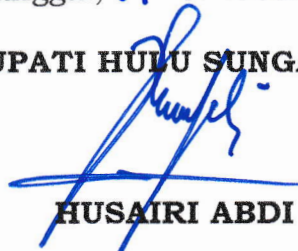 UPATI HULU SUNGA
HUSAIRI ABDI